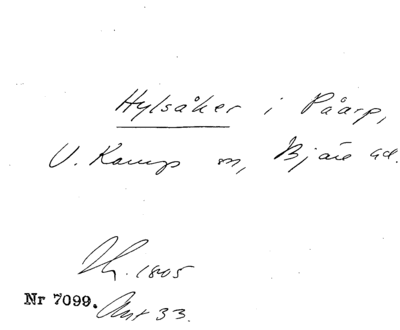 Hylsåker i Påarp,
V. Karup sn, Bjäre hd.
Th. 1805
Nr 7099. Akt 33.